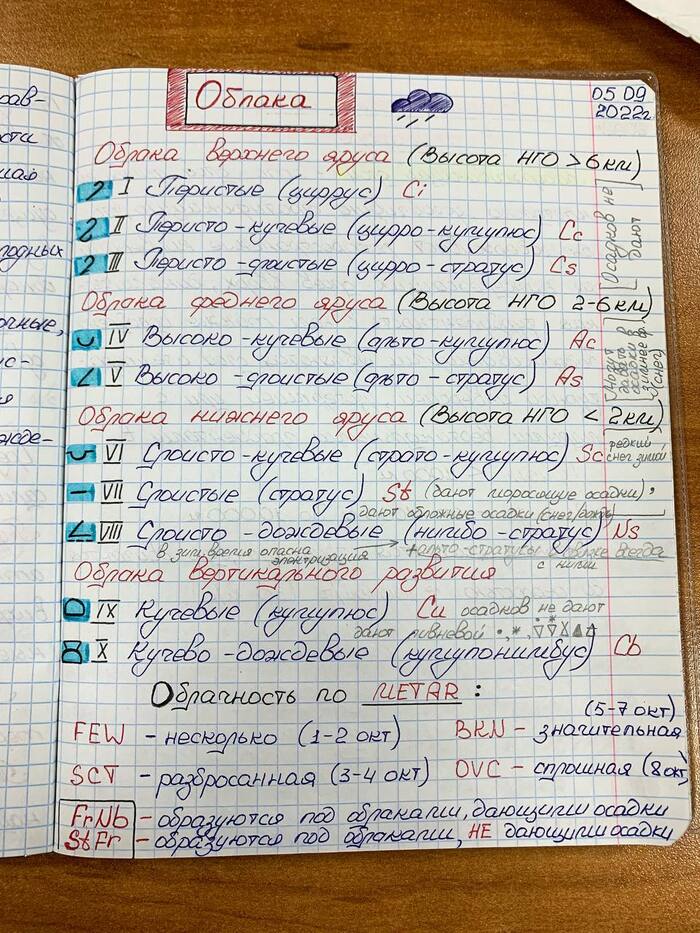 рав-
ости
Облака
05 09
2022г.
Облака верхнего яруса (Высота НГО > 6 км)
I Перистые (циррус) Ci
II Перисто-кучевые (цирро-кумулюс) Cc
III Перисто-слоистые (цирро-стратус) Cs
Осадков не
дают
Облака среднего яруса (Высота НГО 2-6 км)
IV Высоко-кучевые (альто-кумулюс) Ac
V Высоко-слоистые (альто-стратус) As
Могут
давать
осадки в
(снег)
Облака нижнего яруса (Высота НГО < 2 км)
VI Слоисто-кучевые (страто-кумулюс) Sc
редкий
снег зимой
VII Слоистые (стратус) St (дают моросящие осадки)
дают обложные осадки (снег/дождь)
VIII Слоисто-дождевые (нимбо-стратус) Ns
в зим. время опасна
электризация
+альто-стратусы всегда
с ними
Облака вертикального развития
IX Кучевые (кумулюс) Cu осадков не дают
дают ливневой
X Кучево-дождевые (кумулонимбус) Cb
Облачность по METAR:
FEW - несколько (1-2 окт)
(5-7 окт)
BKN - значительная
SCT - разбросанная (3-4 окт)
OVC - сплошная (8 окт)
FrNb - образуются под облаками, дающими осадки
StFr - образуются под облаками, НЕ дающими осадки